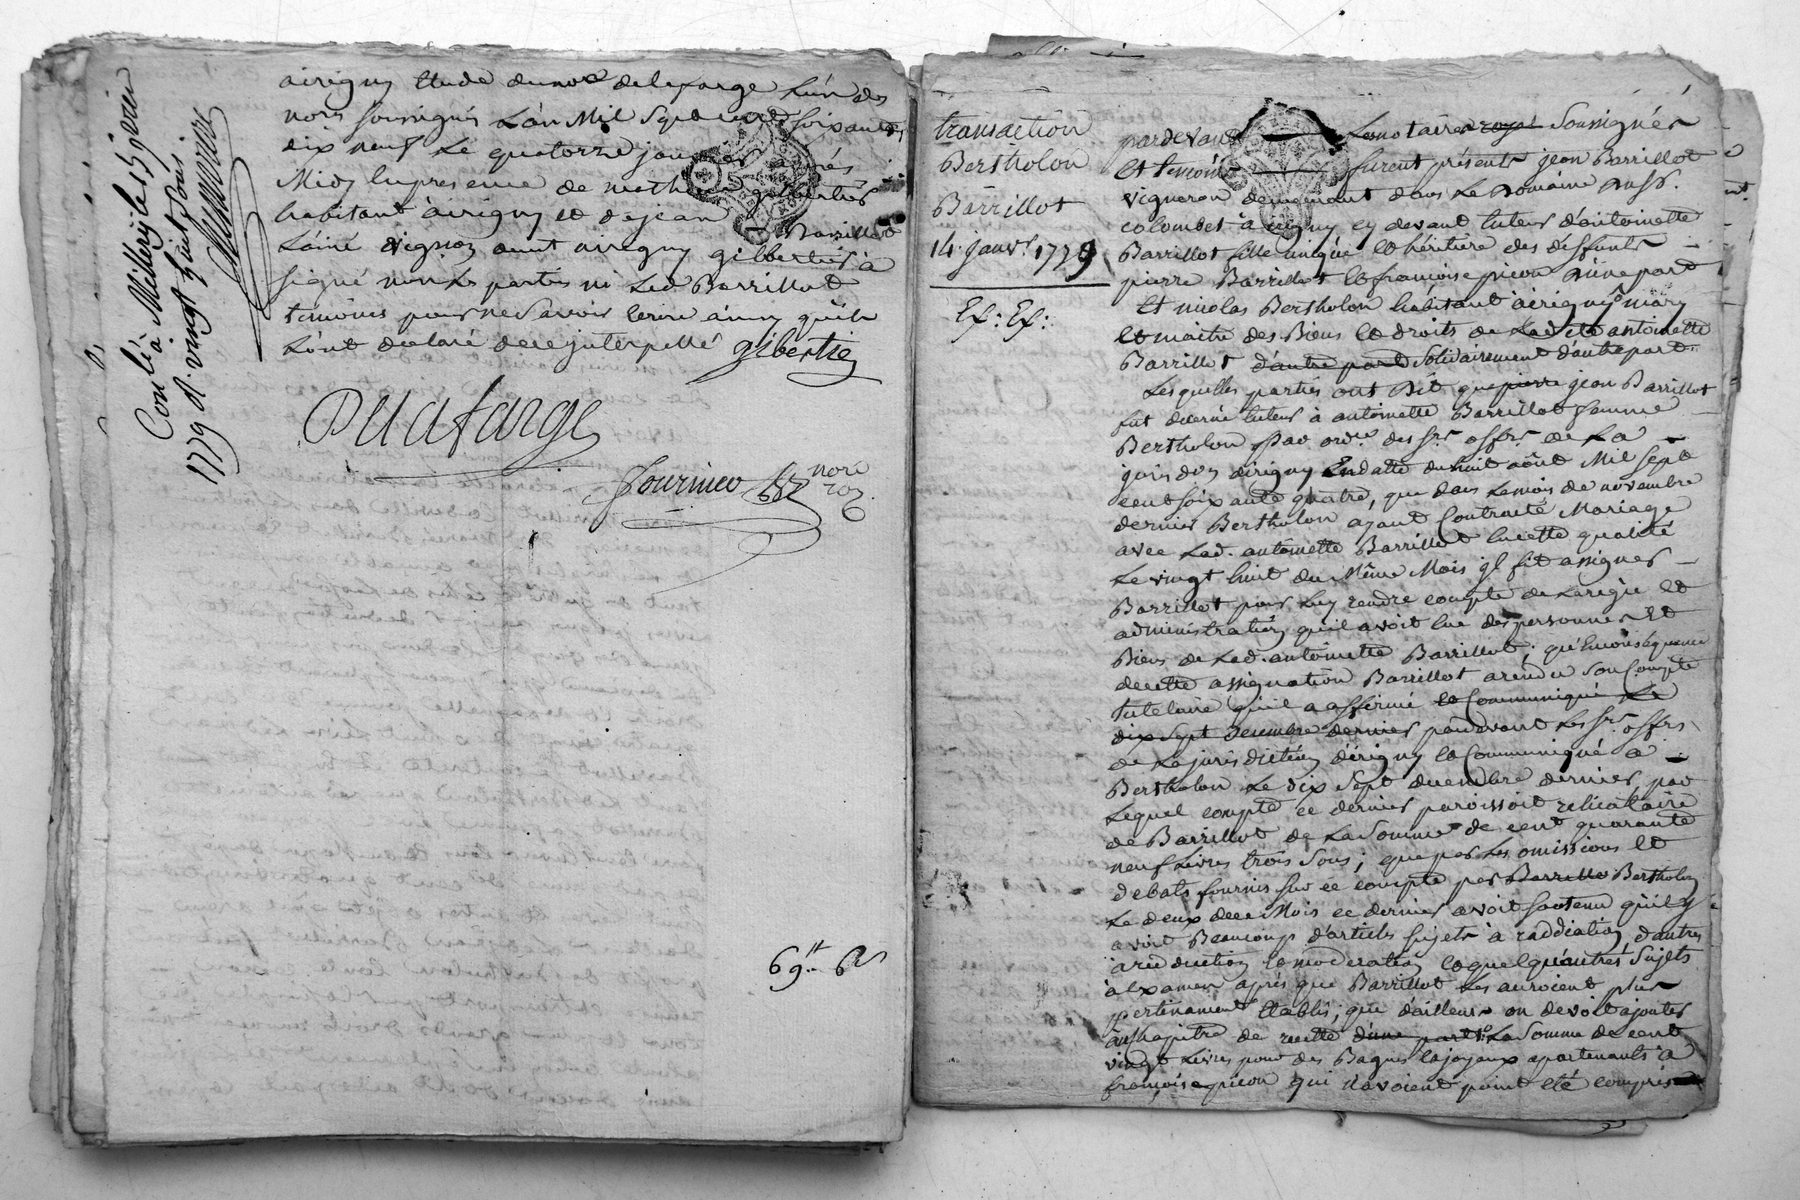 airigny Etude du no.re delafarge L'un des
nores soussignés L'an Mil Sept cent soixante
dix neuf Le quatorze janvier après
Midy En presence de
habitant à irigny et de jean Barrillot
L'ainé vigneron aud. irigny gilbertier à
signé non Les parties ni Led. Barrillot
temoins pour ne savoir ecrire ainsy qu'ils
L'ont declaré de ce interpellé gilbertie
Delafarge
fournieu
nore
roy.
69.tt 6s
Con.lé à Millery le 15 janvier
1779 R. vingt huit sous.
transaction
Bertholon
Barrillot
14. janv.r 1779
Ex: Ex:
pardevant Les notaires royx Soussignés
Et temoins furent présents jean Barrillot
vigneron demeurant dans Le Domaine
colombet à irigny cy devant tuteur d'antoinette
Barrillot fille unique et héritière des deffunts
pierre Barrillot et françoise picon d'une part
Et nicolas Bertholon habitant à irigny mary
et maitre des Biens et droits de Lad. antoinette
Barrillot d'autre part Solidairement d'autre part
Lesquelles parties ont Dit que pierre jean Barrillot
fut decerné tuteur à antoinette Barrillot femme
Bertholon par ord.ce des s.rs off.rs de La
jurisd.on d'irigny En datte du huit août Mil sept
cent soixante quatre, que dans Le mois de novembre
dernier Bertholon ayant Contracté Mariage
avec Lad. antoinette Barrillot En cette qualité
Le vingt huit du Même Mois il fit assigner
Barrillot pour Luy rendre compte de La régie et
administration qu'il avoit Eue des personnes Et
Biens de Lad. antoinette Barrillot; qu'En conséquence
de cette assignation Barrillot a rendu son Compte
tutelaire qu'il a affirmé et Communiqué Le
dix sept Decembre dernier pardevant Les s.rs off.rs
de La jurisdiction d'irigny et Communiqué a
Bertholon Le dix sept decembre dernier, par
Lequel compte ce dernier paroissoit relicataire
de Barrillot de La Somme de cent quarante
neuf Livres trois Sous; que par Les omissions Et
debats fournis sur ce compte par Barrillo Bertholon
Le deux de ce Mois ce dernier avoit soutenu qu'il y
avoit Beaucoup d'articles sujets à raddiation, d'autres
à reduction et moderation et quelqu'autres Sujets
à Examen après que Barrillot Les auroient plus
pertinament Etablis; que d'ailleurs on devoit ajouter
au Chapitre de recette d'une part La Somme de cent
vingt Livres pour des Bagues et joyaux apartenants à
françoise picon qui n'avoient point eté compris